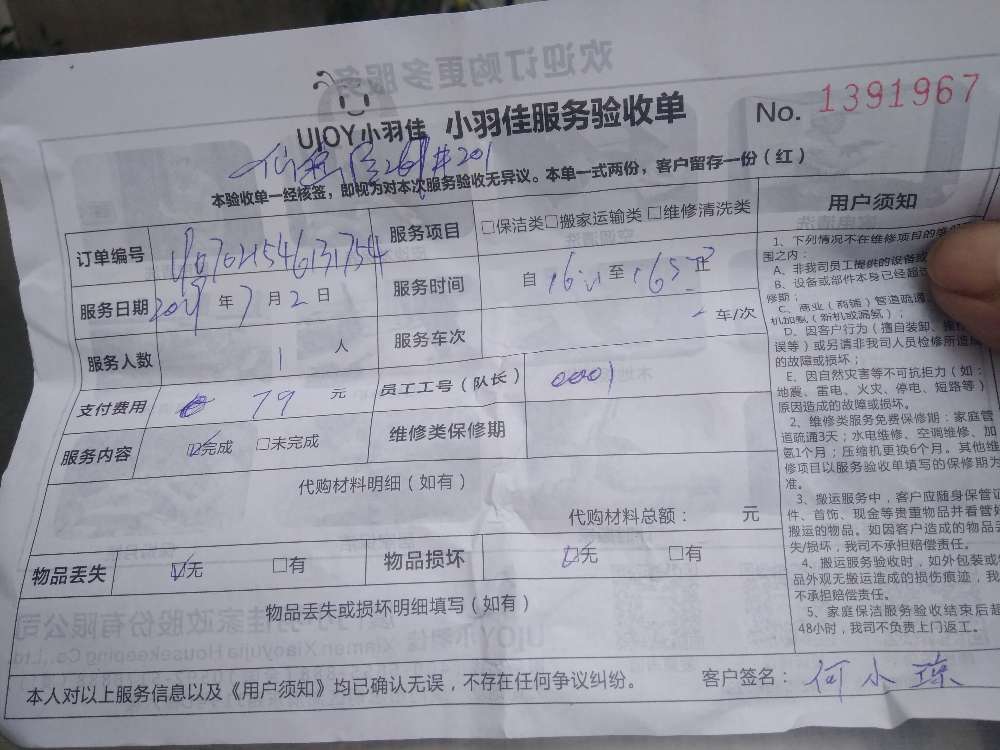 UJOY小羽佳 小羽佳服务验收单 No. 1391967
#201
本验收单一经核签，即视为对本次服务验收无异议。本单一式两份，客户留存一份（红）
订单编号 服务项目 □保洁类□搬家运输类 □维修清洗类
服务日期 年 7 月 2 日 服务时间 自 至
服务人数 1 人 服务车次 车/次
支付费用 79 元 员工工号（队长） 0001
服务内容 ☑完成 □未完成 维修类保修期
代购材料明细（如有）
代购材料总额： 元
物品丢失 ☑无 □有 物品损坏 ☑无 □有
物品丢失或损坏明细填写（如有）
本人对以上服务信息以及《用户须知》均已确认无误，不存在任何争议纠纷。 客户签名： 何小琼
用户须知
1、下列情况不在维修项目的
围之内：
A、非我司员工提供的设备或
B、设备或部件本身已经超
修期；
C、商业（商铺）管道疏通、
机加氨（新机或漏氨）；
D、因客户行为（擅自装卸、操
误等）或另请非我司人员检修所造成
的故障或损坏；
E、因自然灾害等不可抗拒力（如：
地震、雷电、火灾、停电、短路等）
原因造成的故障或损坏。
2、维修类服务免费保修期：家庭管
道疏通3天；水电维修、空调维修、加
氨1个月；压缩机更换6个月。其他维
修项目以服务验收单填写的保修期为
准。
3、搬运服务中，客户应随身保管证
件、首饰、现金等贵重物品并看管好
搬运的物品。如因客户造成的物品丢
失/损坏，我司不承担赔偿责任。
4、搬运服务验收时，如外包装或
品外观无搬运造成的损伤痕迹，我
不承担赔偿责任。
5、家庭保洁服务验收结束后超
48小时，我司不负责上门返工。